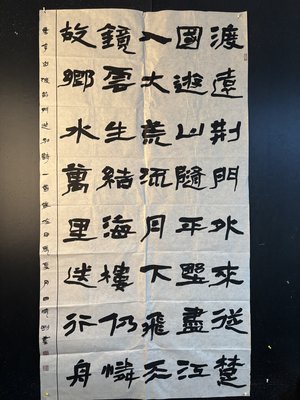 渡遠荆門外來從楚
國遊山隨平墅盡江
入大荒流月下飛天
鏡雲生結海樓仍憐
故鄉水萬里送行舟
李白渡荊門送別詩一首